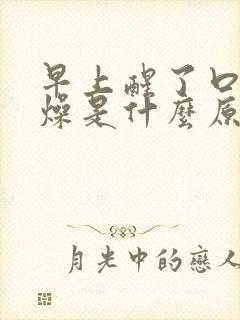 早上醒了口
燥是什麼原
月光中的戀人